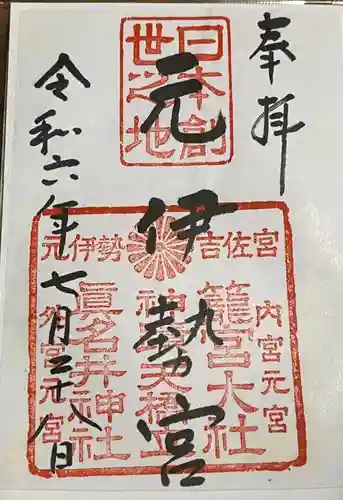 奉拝
日本創
世之地
元伊勢宮
元伊勢 吉佐宮
内宮元宮
籠宮大社
神代天橋立
眞名井神社
外宮元宮
令和六年七月二十八日